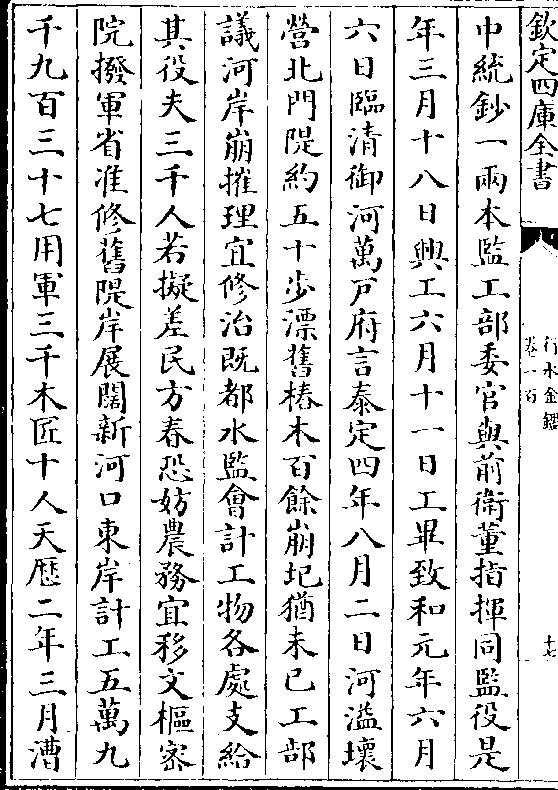 欽定四庫全書
行水金鑑
卷一百
十七
中統鈔一兩本監工部委官與前衛董指揮同監役是
年三月十八日興工六月十一日工畢致和元年六月
六日臨清御河萬戸府言泰定四年八月二日河溢壞
營北門隄約五十步漂舊樁木百餘崩圮猶未已工部
議河岸崩摧理宜修治既都水監會計工物各處支給
其役夫三千人若擬差民方春恐妨農務宜移文樞宻
院撥軍省准修舊隄岸展闊新河口東岸計工五萬九
千九百三十七用軍三千木匠十人天厯二年三月漕